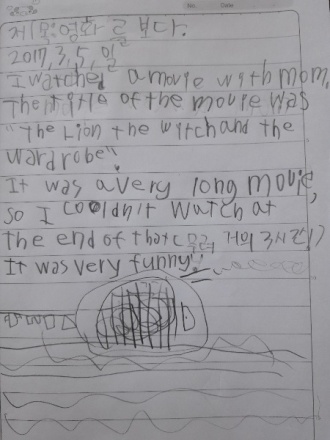 제목:영화를 보다.
2017, 3, 5, 일
I watched a movie with mom,
The title of the movie was
"The Lion the witch and the
wardrobe".
It was a very long movie,
so I couldn't watch at
the end of that(무려 거의 3시간!)
It was very funny!!